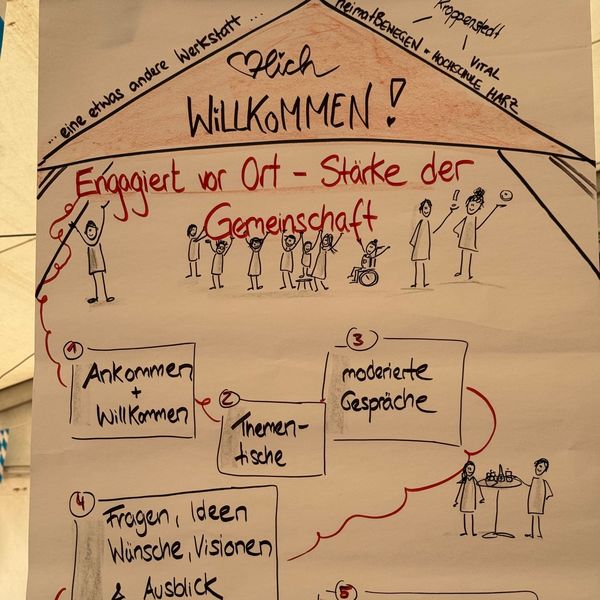 ...eine etwas andere Werkstatt...
HeimatBEWEGEN - HOCHSCHULE HARZ
Kroppenstedt
VITAL
♡lich
WILLKOMMEN!
Engagiert vor Ort - Stärke der
Gemeinschaft
1
Ankommen
+
Willkommen
2
Themen-
tische
3
moderierte
Gespräche
4
Fragen, Ideen
Wünsche, Visionen
& Ausblick
5